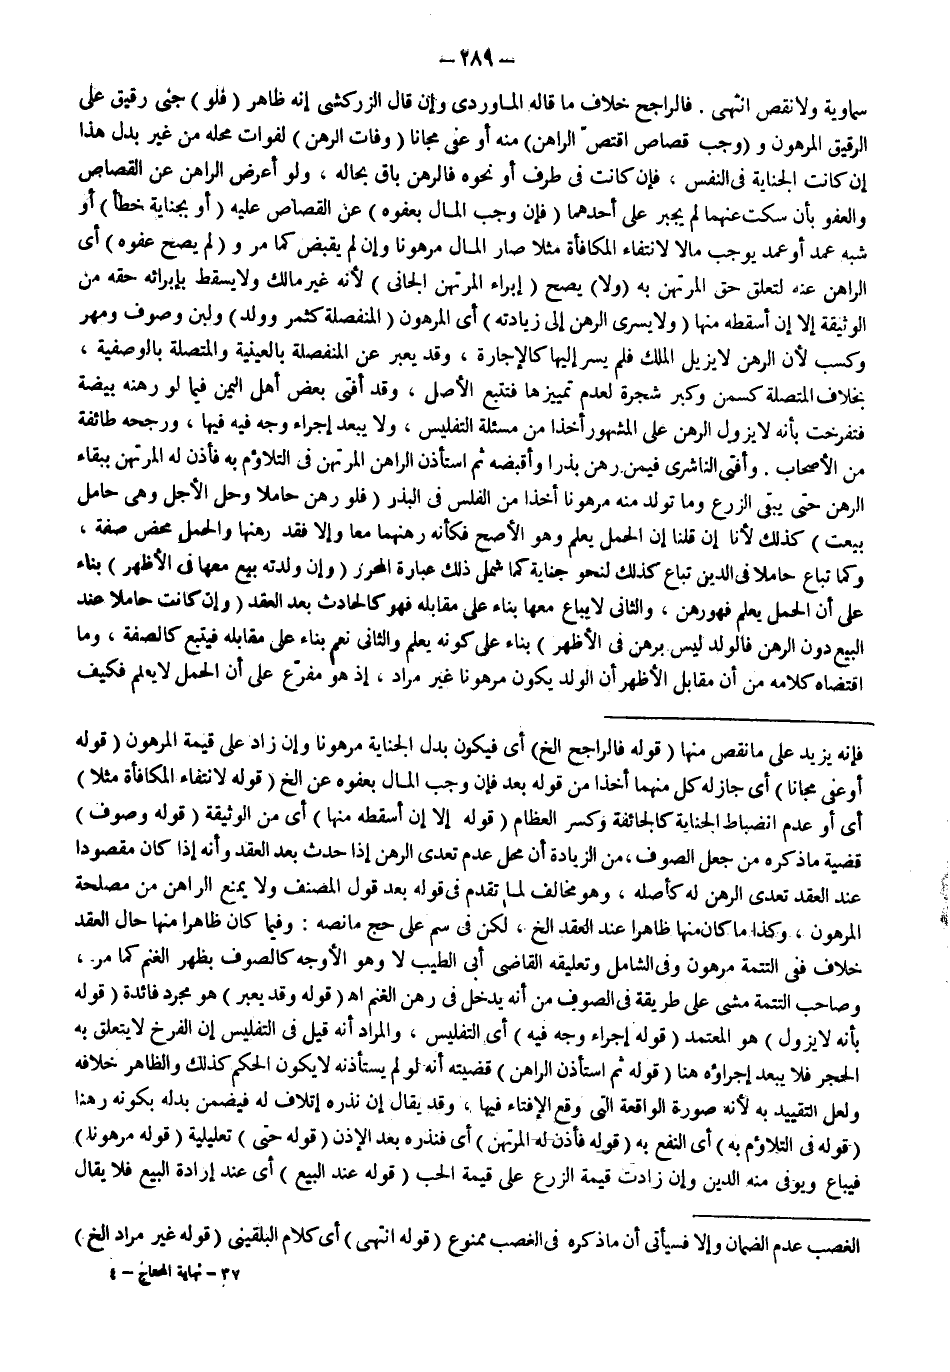 — ٢٨٩ —
سماوية ولا نقص انتهى . فالراجح خلاف ما قاله الماوردى وإن قال الزركشى إنه ظاهر ( فلو ) جنى رقيق على
الرقيق المرهون و ( وجب قصاص اقتص الراهن ) منه أو عفى مجانا ( وفات الرهن ) لفوات محله من غير بدل هذا
إن كانت الجناية فى النفس ، فإن كانت فى طرف أو نحوه فالرهن باق بحاله ، ولو أعرض الراهن عن القصاص
والعفو بأن سكت عنهما لم يجبر على أحدهما ( فإن وجب المال بعفوه ) عن القصاص عليه ( أو بجناية خطأ ) أو
شبه عمد أو عمد يوجب مالا لانتفاء المكافأة مثلا صار المال مرهونا وإن لم يقبض كما مر و ( لم يصح عفوه ) أى
الراهن عنه لتعلق حق المرتهن به ( ولا ) يصح ( إبراء المرتهن الجانى ) لأنه غير مالك ولا يسقط بإبرائه حقه من
الوثيقة إلا إن أسقطه منها ( ولا يسرى الرهن إلى زيادته ) أى المرهون ( المنفصلة كثمر وولد ) ولبن وصوف ومهر
وكسب لأن الرهن لا يزيل الملك فلم يسر إليها كالإجارة ، وقد يعبر عن المنفصلة بالعينية والمتصلة بالوصفية ،
بخلاف المتصلة كسمن وكبر شجرة لعدم تمييزها فتتبع الأصل ، وقد أفتى بعض أهل اليمن فيما لو رهنه بيضة
فتفرخت بأنه لا يزول الرهن على المشهور أخذا من مسئلة التفليس ، ولا يبعد إجراء وجه فيه فيها ، ورجحه طائفة
من الأصحاب . وأفتى الناشرى فيمن رهن بذرا وأقبضه ثم استأذن الراهن المرتهن فى التلاؤم به فأذن له المرتهن ببقاء
الرهن حتى يبقى الزرع وما تولد منه مرهونا أخذا من الفلس فى البذر ( فلو رهن حاملا وحل الأجل وهى حامل
بيعت ) كذلك لأنا إن قلنا إن الحمل يعلم وهو الأصح فكأنه رهنهما معا وإلا فقد رهنها والحمل محض صفة ،
وكما تباع حاملا فى الدين تباع كذلك لنحو جناية كما شمل ذلك عبارة المحرر ( وإن ولدته بيع معها فى الأظهر ) بناء
على أن الحمل يعلم فهو رهن ، والثانى لا يباع معها بناء على مقابله فهو كالحادث بعد العقد ( وإن كانت حاملا عند
البيع دون الرهن فالولد ليس برهن فى الأظهر ) بناء على كونه يعلم والثانى نعم بناء على مقابله فيتبع كالصفة ، وما
اقتضاه كلامه من أن مقابل الأظهر أن الولد يكون مرهونا غير مراد ، إذ هو مفرّع على أن الحمل لا يعلم فكيف
فإنه يزيد على ما نقص منها ( قوله فالراجح الخ ) أى فيكون بدل الجناية مرهونا وإن زاد على قيمة المرهون ( قوله
أو عفى مجانا ) أى جاز له كل منهما أخذا من قوله بعد فإن وجب المال بعفوه عن الخ ( قوله لانتفاء المكافأة مثلا )
أى أو عدم انضباط الجناية كالجائفة وكسر العظام ( قوله إلا إن أسقطه منها ) أى من الوثيقة ( قوله وصوف )
قضية ما ذكره من جعل الصوف ، من الزيادة أن محل عدم تعدى الرهن إذا حدث بعد العقد وأنه إذا كان مقصودا
عند العقد تعدى الرهن له كأصله ، وهو مخالف لما تقدم فى قوله بعد قول المصنف ولا يمنع الراهن من مصلحة
المرهون ، وكذا ما كان منها ظاهرا عند العقد الخ ، لكن فى سم على حج ما نصه : وفيما كان ظاهرا منها حال العقد
خلاف فنى التتمة مرهون وفى الشامل وتعليقه القاضى أبى الطيب لا وهو الأوجه كالصوف بظهر الغنم كما مر ،
وصاحب التتمة مشى على طريقة فى الصوف من أنه يدخل فى رهن الغنم اه ( قوله وقد يعبر ) هو مجرد فائدة ( قوله
بأنه لا يزول ) هو المعتمد ( قوله إجراء وجه فيه ) أى التفليس ، والمراد أنه قيل فى التفليس إن الفرخ لا يتعلق به
الحجر فلا يبعد إجراؤه هنا ( قوله ثم استأذن الراهن ) قضيته أنه لو لم يستأذنه لا يكون الحكم كذلك والظاهر خلافه
ولعل التقييد به لأنه صورة الواقعة التى وقع الإفتاء فيها ، وقد يقال إن نذره إتلاف له فيضمن بدله بكونه رهنا
( قوله فى التلاؤم به ) أى النفع به ( قوله فأذن له المرتهن ) أى فنذره بعد الإذن ( قوله حتى ) تعليلية ( قوله مرهونا )
فيباع ويوفى منه الدين وإن زادت قيمة الزرع على قيمة الحب ( قوله عند البيع ) أى عند إرادة البيع فلا يقال
الغصب عدم الضمان وإلا فسيأتى أن ما ذكره فى الغصب ممنوع ( قوله انتهى ) أى كلام البلقينى ( قوله غير مراد الخ )
٣٧ - نهاية المحتاج - ٤